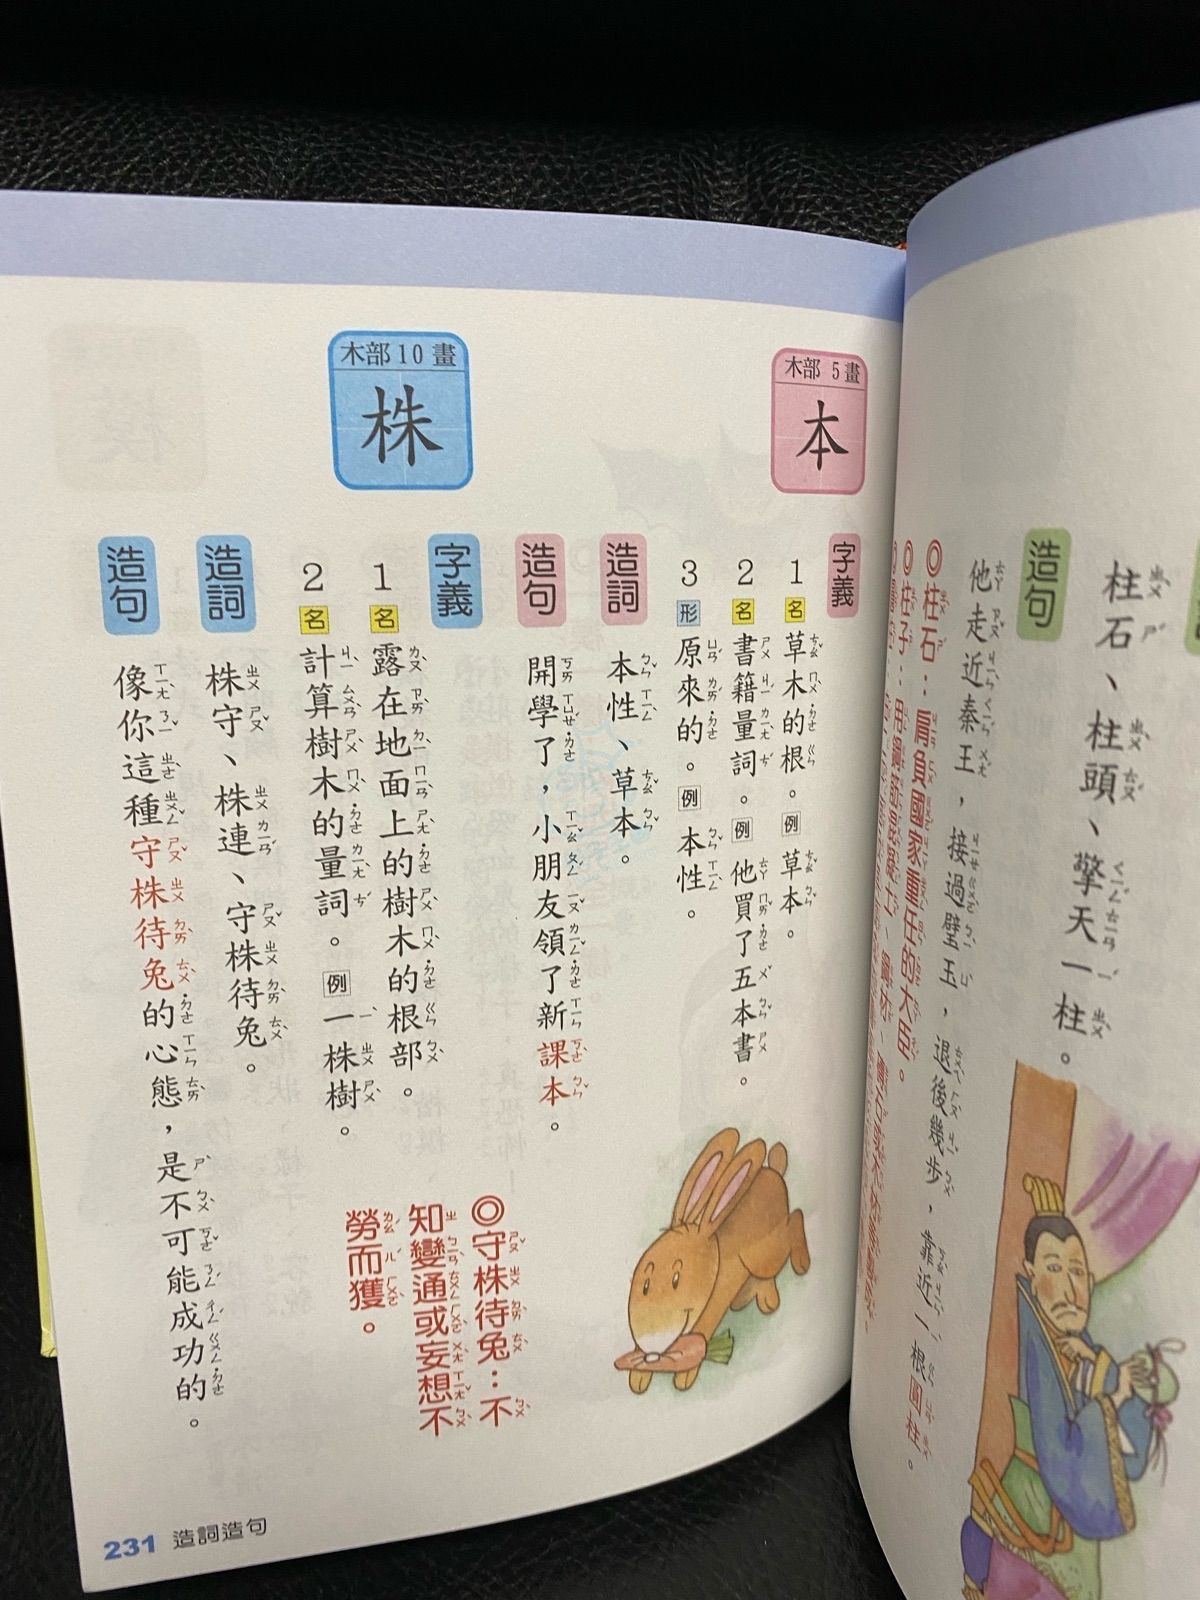 柱石、柱頭、擎天一柱。
造句
他走近秦王，接過璧玉，退後幾步，靠近一根圓柱。
◎柱石：肩負國家重任的大臣。
木部 5 畫
本
字義
1 名 草木的根。例 草本。
2 名 書籍量詞。例 他買了五本書。
3 形 原來的。例 本性。
造詞
本性、草本。
造句
開學了，小朋友領了新課本。
木部 10 畫
株
字義
1 名 露在地面上的樹木的根部。
2 名 計算樹木的量詞。例 一株樹。
造詞
株守、株連、守株待兔。
造句
像你這種守株待兔的心態，是不可能成功的。
◎守株待兔：不
知變通或妄想不
勞而獲。
231 造詞造句